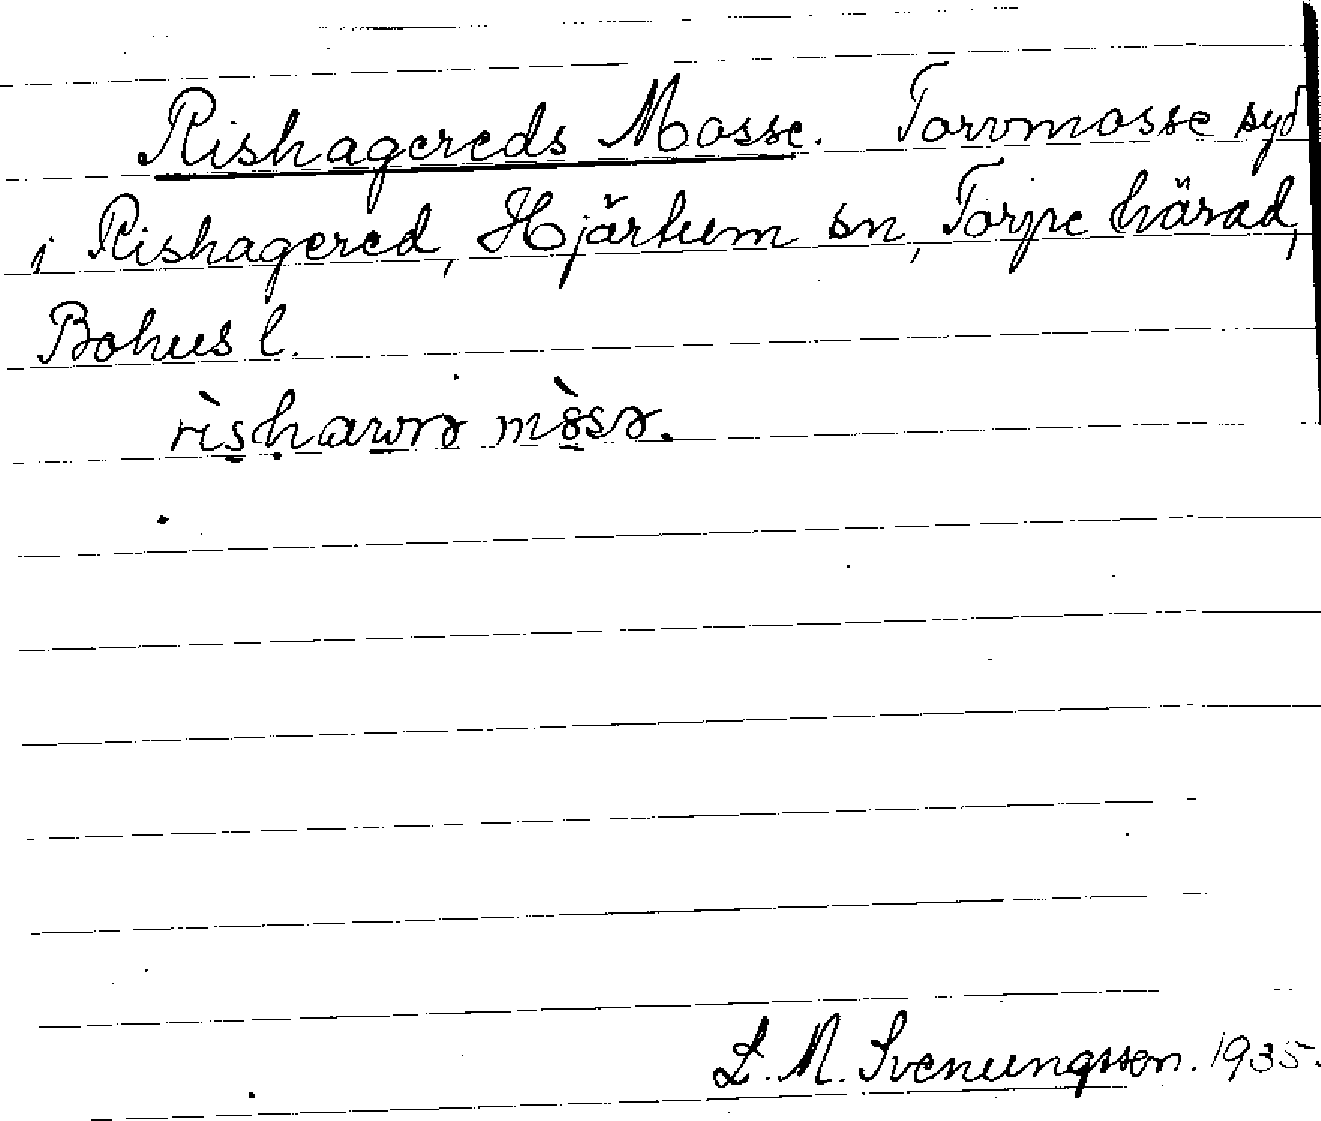 Rishagereds Mosse. Torvmosse syd
i Rishagered, Hjärtum sn, Torpe härad,
Bohus l.
mòsə.
L. M. Svenungsson. 1935.